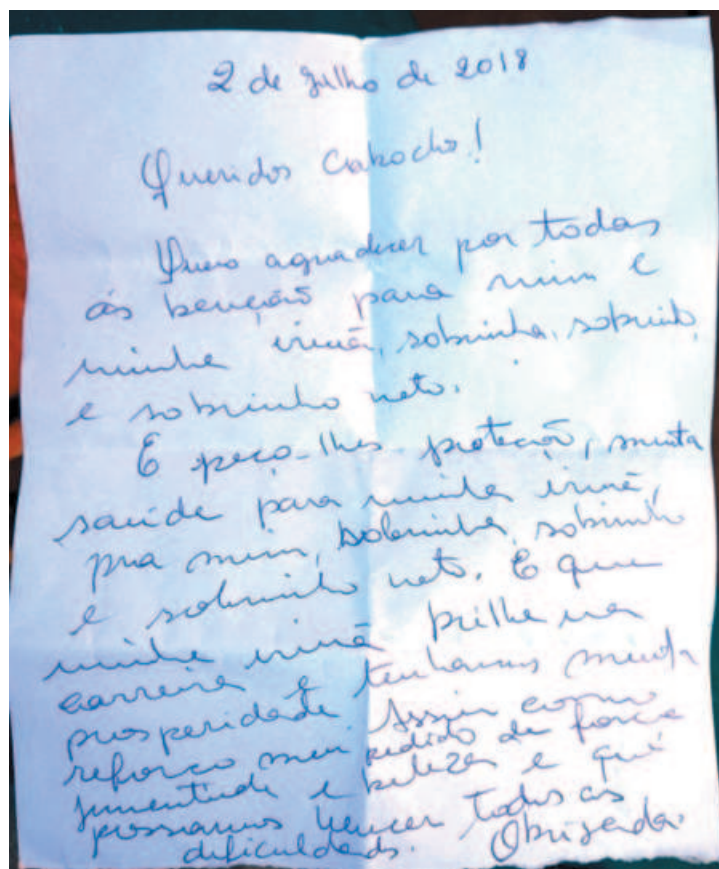 2 de Julho de 2018
Queridos Caboclos!
Quero agradecer por todas
ás bençãos para mim e
minha irmã, sobrinha, sobrinho
e sobrinho neto.
E peço-lhes proteção, muita
saúde para minha irmã,
pra mim, sobrinha, sobrinho
e sobrinho neto. E que
minha irmã brilhe na
carreira e tenhamos muita
prosperidade Assim como
reforço meu pedido de força
juventude e beleza e que
possamos vencer todas as
dificuldades. Obrigada.